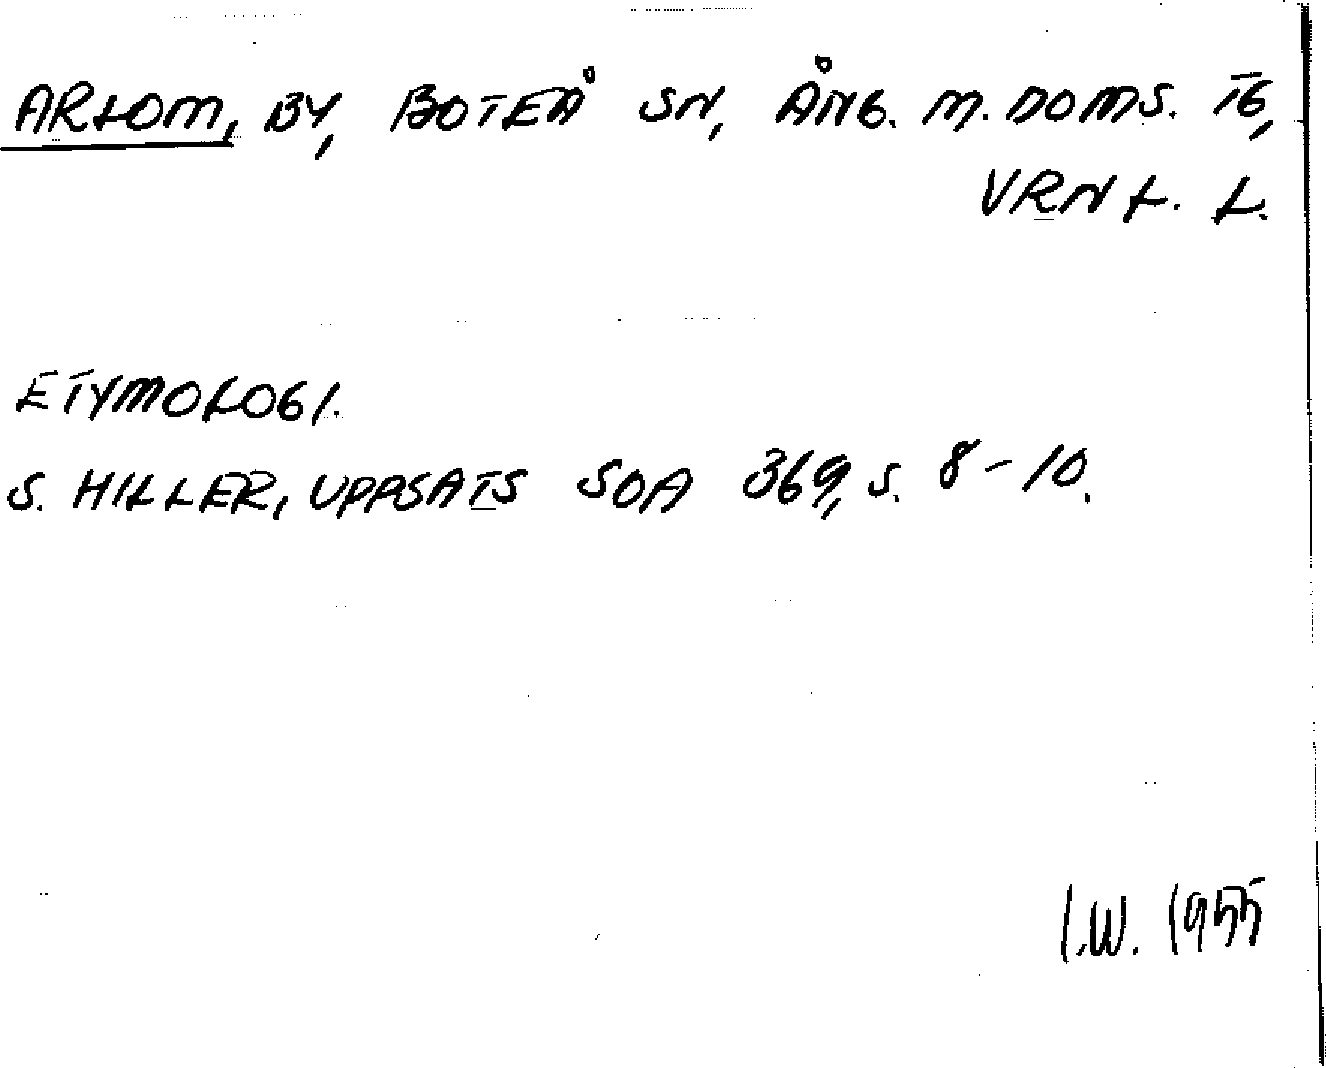 ARLOM, BY, BOTEÅ SN, ÅNG. M. DOMS. TG,
VRNL. L.
ETYMOLOGI.
S. HILLER, UPPSATS SOA 369, S. 8-10.
I.W. 1955